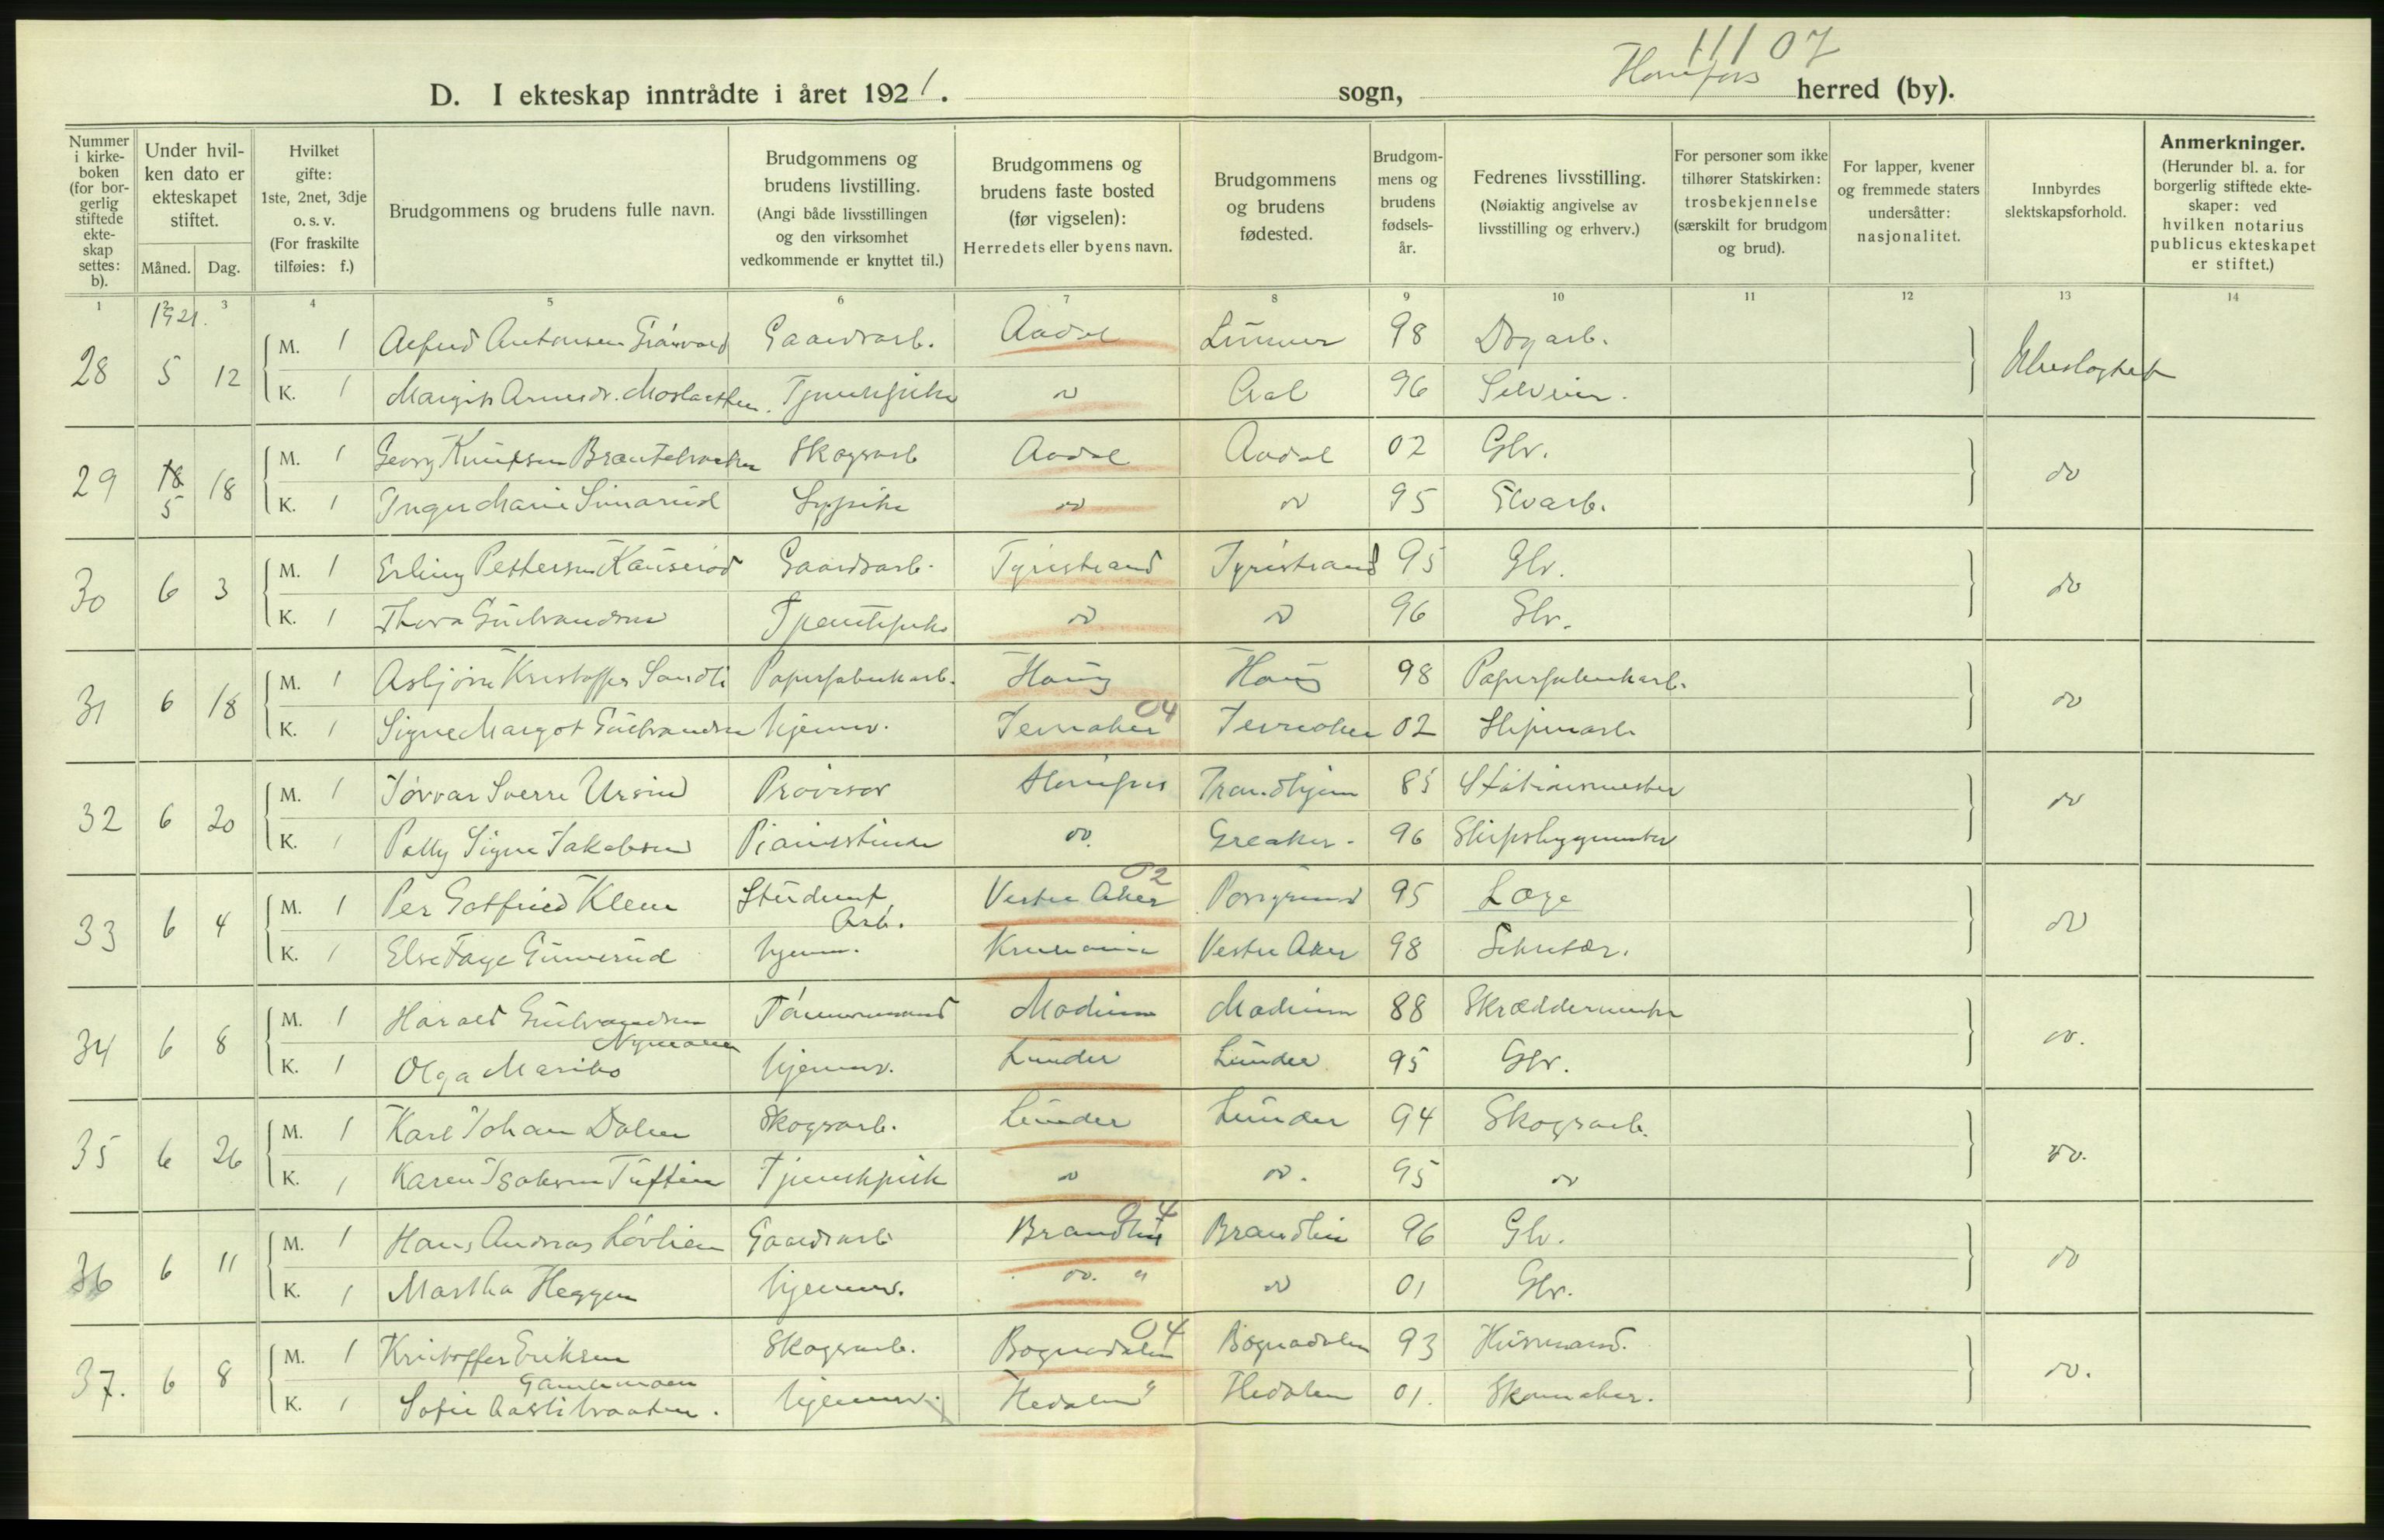 111 07
D. I ekteskap inntrådte i året 1921. sogn, Hønefoss herred (by).
Nummer i kirkeboken (for borgerlig stiftede ekteskap settes: b).
Under hvilken dato er ekteskapet stiftet.
Måned. Dag.
Hvilket gifte: 1ste, 2net, 3dje o. s. v. (For fraskilte tilføies: f.)
Brudgommens og brudens fulle navn.
Brudgommens og brudens livstilling. (Angi både livsstillingen og den virksomhet vedkommende er knyttet til.)
Brudgommens og brudens faste bosted (før vigselen): Herredets eller byens navn.
Brudgommens og brudens fødested.
Brudgommens og brudens fødselsår.
Fedrenes livsstilling. (Nøiaktig angivelse av livsstilling og erhverv.)
For personer som ikke tilhører Statskirken: trosbekjennelse (særskilt for brudgom og brud).
For lapper, kvener og fremmede staters undersåtter: nasjonalitet.
Innbyrdes slektskapsforhold.
Anmerkninger. (Herunder bl. a. for borgerlig stiftede ekteskaper: ved hvilken notarius publicus ekteskapet er stiftet.)
1 2 3 4 5 6 7 8 9 10 11 12 13 14
1921.
28 5 12 M. 1 Alfred Antonsen Gaardsarb. Aadal Lunner 98 Dagarb.
K. 1 Margit do Aal 96 Selveier.
29 18 5 18 M. 1 Georg Knutsen Skogsarb Aadal Aadal 02 Gbr. do
K. 1 Inger Marie Simarud Sypike do do 95 Elvarb.
30 6 3 M. 1 Erling Pettersen Gaardsarb. Tyristrand Tyristrand 95 Gbr. do
K. 1 Thora Gulbrandsen Tjenestepike do do 96 Gbr.
31 6 18 M. 1 Asbjørn Kristoffer Sandli Papirfabrikarb. Haug Haug 98 Papirfabrikarb. do
K. 1 Signe Margot Gulbrandsen hjemmev. Jevnaker 04 Jevnaker 02 Sliperiarb
32 6 20 M. 1 Sverre Ursin Provisor Hønefoss Trondhjem 85 Stationsmester do
K. 1 Polly Signe Jakobsen Pianistinde do. Greaker. 96 Skipsbyggmester
33 6 4 M. 1 Per Gotfried Klem Student Arb. Vestre Aker 02 Porsgrund 95 Læge do
K. 1 Else Faye Gunnerud hjemm. Kristiania Vestre Aker 98 Sekretær.
34 6 8 M. 1 Harald Gulbrandsen Nymoen Tømmermand Modum Modum 88 Skræddermester do.
K. 1 Olga hjemmev. Lunder Lunder 95 Gbr.
35 6 26 M. 1 Karl Johan Dalen Skogsarb. Lunder Lunder 94 Skogsarb. do.
K. 1 Karen Isaksen Tuften Tjenestepike do do. 95 do
36 6 11 M. 1 Hans Andreas Løvlien Gaardsarb Brandbu 04 Brandbu 96 Gbr. do
K. 1 Martha Heggen hjemmev. do. " do 01 Gbr.
37. 6 8 M. 1 Kristoffer Eriksen Skogsarb. Begnadalen 04 Begnadalen 93 Husmand. do.
K. 1 Sofie hjemmev. Hedalen " Hedalen 01. Skomaker.